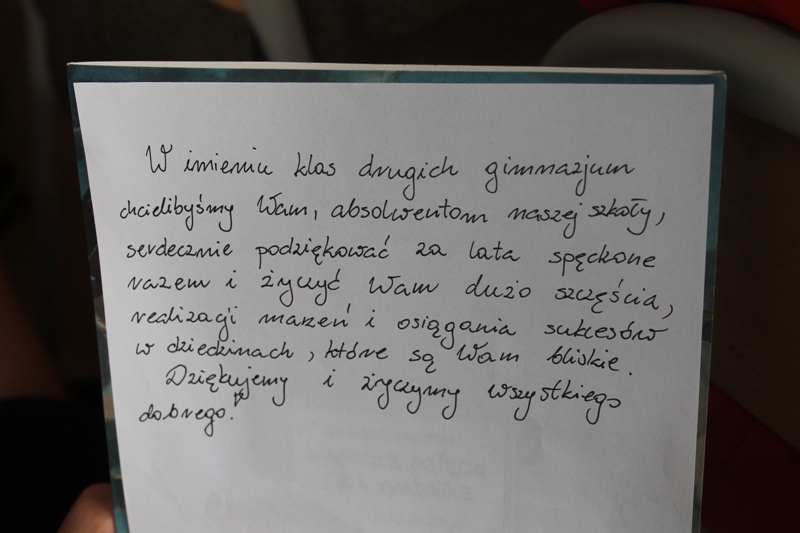 W imieniu klas drugich gimnazjum
chcielibyśmy Wam, absolwentom naszej szkoły,
serdecznie podziękować za lata spędzone
razem i życzyć Wam dużo szczęścia,
realizacji marzeń i osiągania sukcesów
w dziedzinach, które są Wam bliskie.
Dziękujemy i życzymy wszystkiego
dobrego!